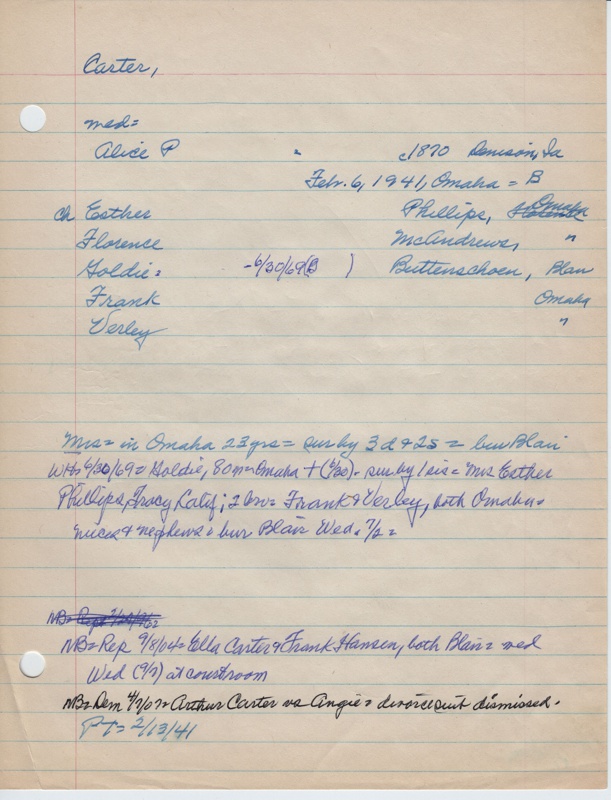 Carter,
med=
Alice P = c1870 Denison, Ia
Febr. 6, 1941, Omaha = B
ch Esther Phillips, Omaha
Florence McAndrews, "
Goldie = -6/30/69(B ) Buttenschoen, Blair
Frank Omaha
Verley "
Mrs= in Omaha 23yrs= sur by 3d & 2s = bur Blair
WH= 6/30/69= Goldie, 80 n= Omaha + (6/30). sur by 1 sis = Mrs Esther
Phillips, Tracy Calif; 2 bro= Frank & Verley, both Omaha=
nieces & nephews= bur Blair Wed. 7/2=
NB= Rep 9/8/04= Ella Carter & Frank Hansen, both Blair= med
Wed (9/7) at courtroom
NB= Dem 4/7/07= Arthur Carter vs Angie= divorce suit dismissed.
PT= 2/13/41